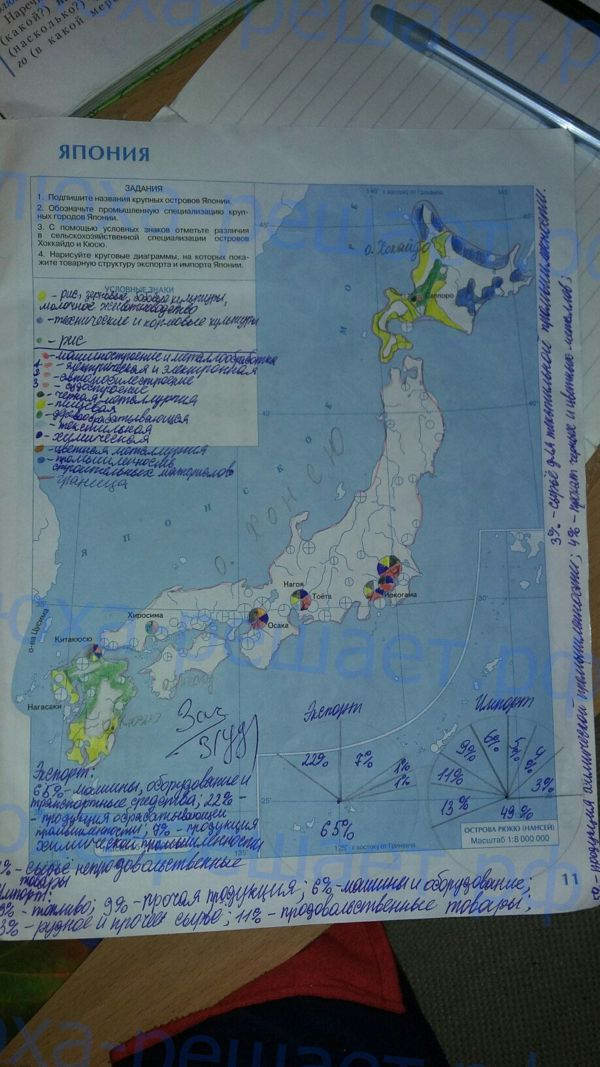 Нареч
(какой?)
(насколько?)
го (в какой мере
люха-решает.рф
ЯПОНИЯ
ЗАДАНИЯ
1. Подпишите названия крупных островов Японии.
2. Обозначьте промышленную специализацию круп-
ных городов Японии.
3. С помощью условных знаков отметьте различия
в сельскохозяйственной специализации островов
Хоккайдо и Кюсю.
4. Нарисуйте круговые диаграммы, на которых пока-
жите товарную структуру экспорта и импорта Японии.
УСЛОВНЫЕ ЗНАКИ
- рис, зерновые, бобовые культуры,
молочное животноводство
- технические и кормовые культуры
- рис
- машиностроение и металлообработка
- электрическая и электронная
- автомобилестроение
- судостроение
- чёрная металлургия
- пищевая
- деревообрабатывающая
- текстильная
- химическая
- цветная металлургия
- промышленность
строительных материалов
граница
о. Хоккайдо
Саппоро
ЯПОНСКОЕ
МОРЕ
О. ХОНСЮ
Нагоя
Тоёта
Иокогама
Осака
Хиросима
Китакюсю
о-ва Цусима
Нагасаки
Зач
Экспорт
22%
7%
1%
1%
65%
Импорт
9%
6%
5%
4%
3%
11%
13%
49%
ОСТРОВА РЮКЮ (НАНСЕЙ)
Масштаб 1:8 000 000
125° к востоку от Гринвича
Экспорт:
65% - машины, оборудование и
транспортные средства; 22% -
- продукция обрабатывающей
промышленности; 9% - продукция
химической промышленности
1% - сырьё непродовольственные
товары
Импорт:
- топливо; 9% - прочая продукция; 6% - машины и оборудование;
3% - рудное и прочее сырьё; 11% - продовольственные товары;
11
5% - продукция химической промышленности; 4% - прокат чёрных и цветных металлов;
3% - сырьё для текстильной промышленности.